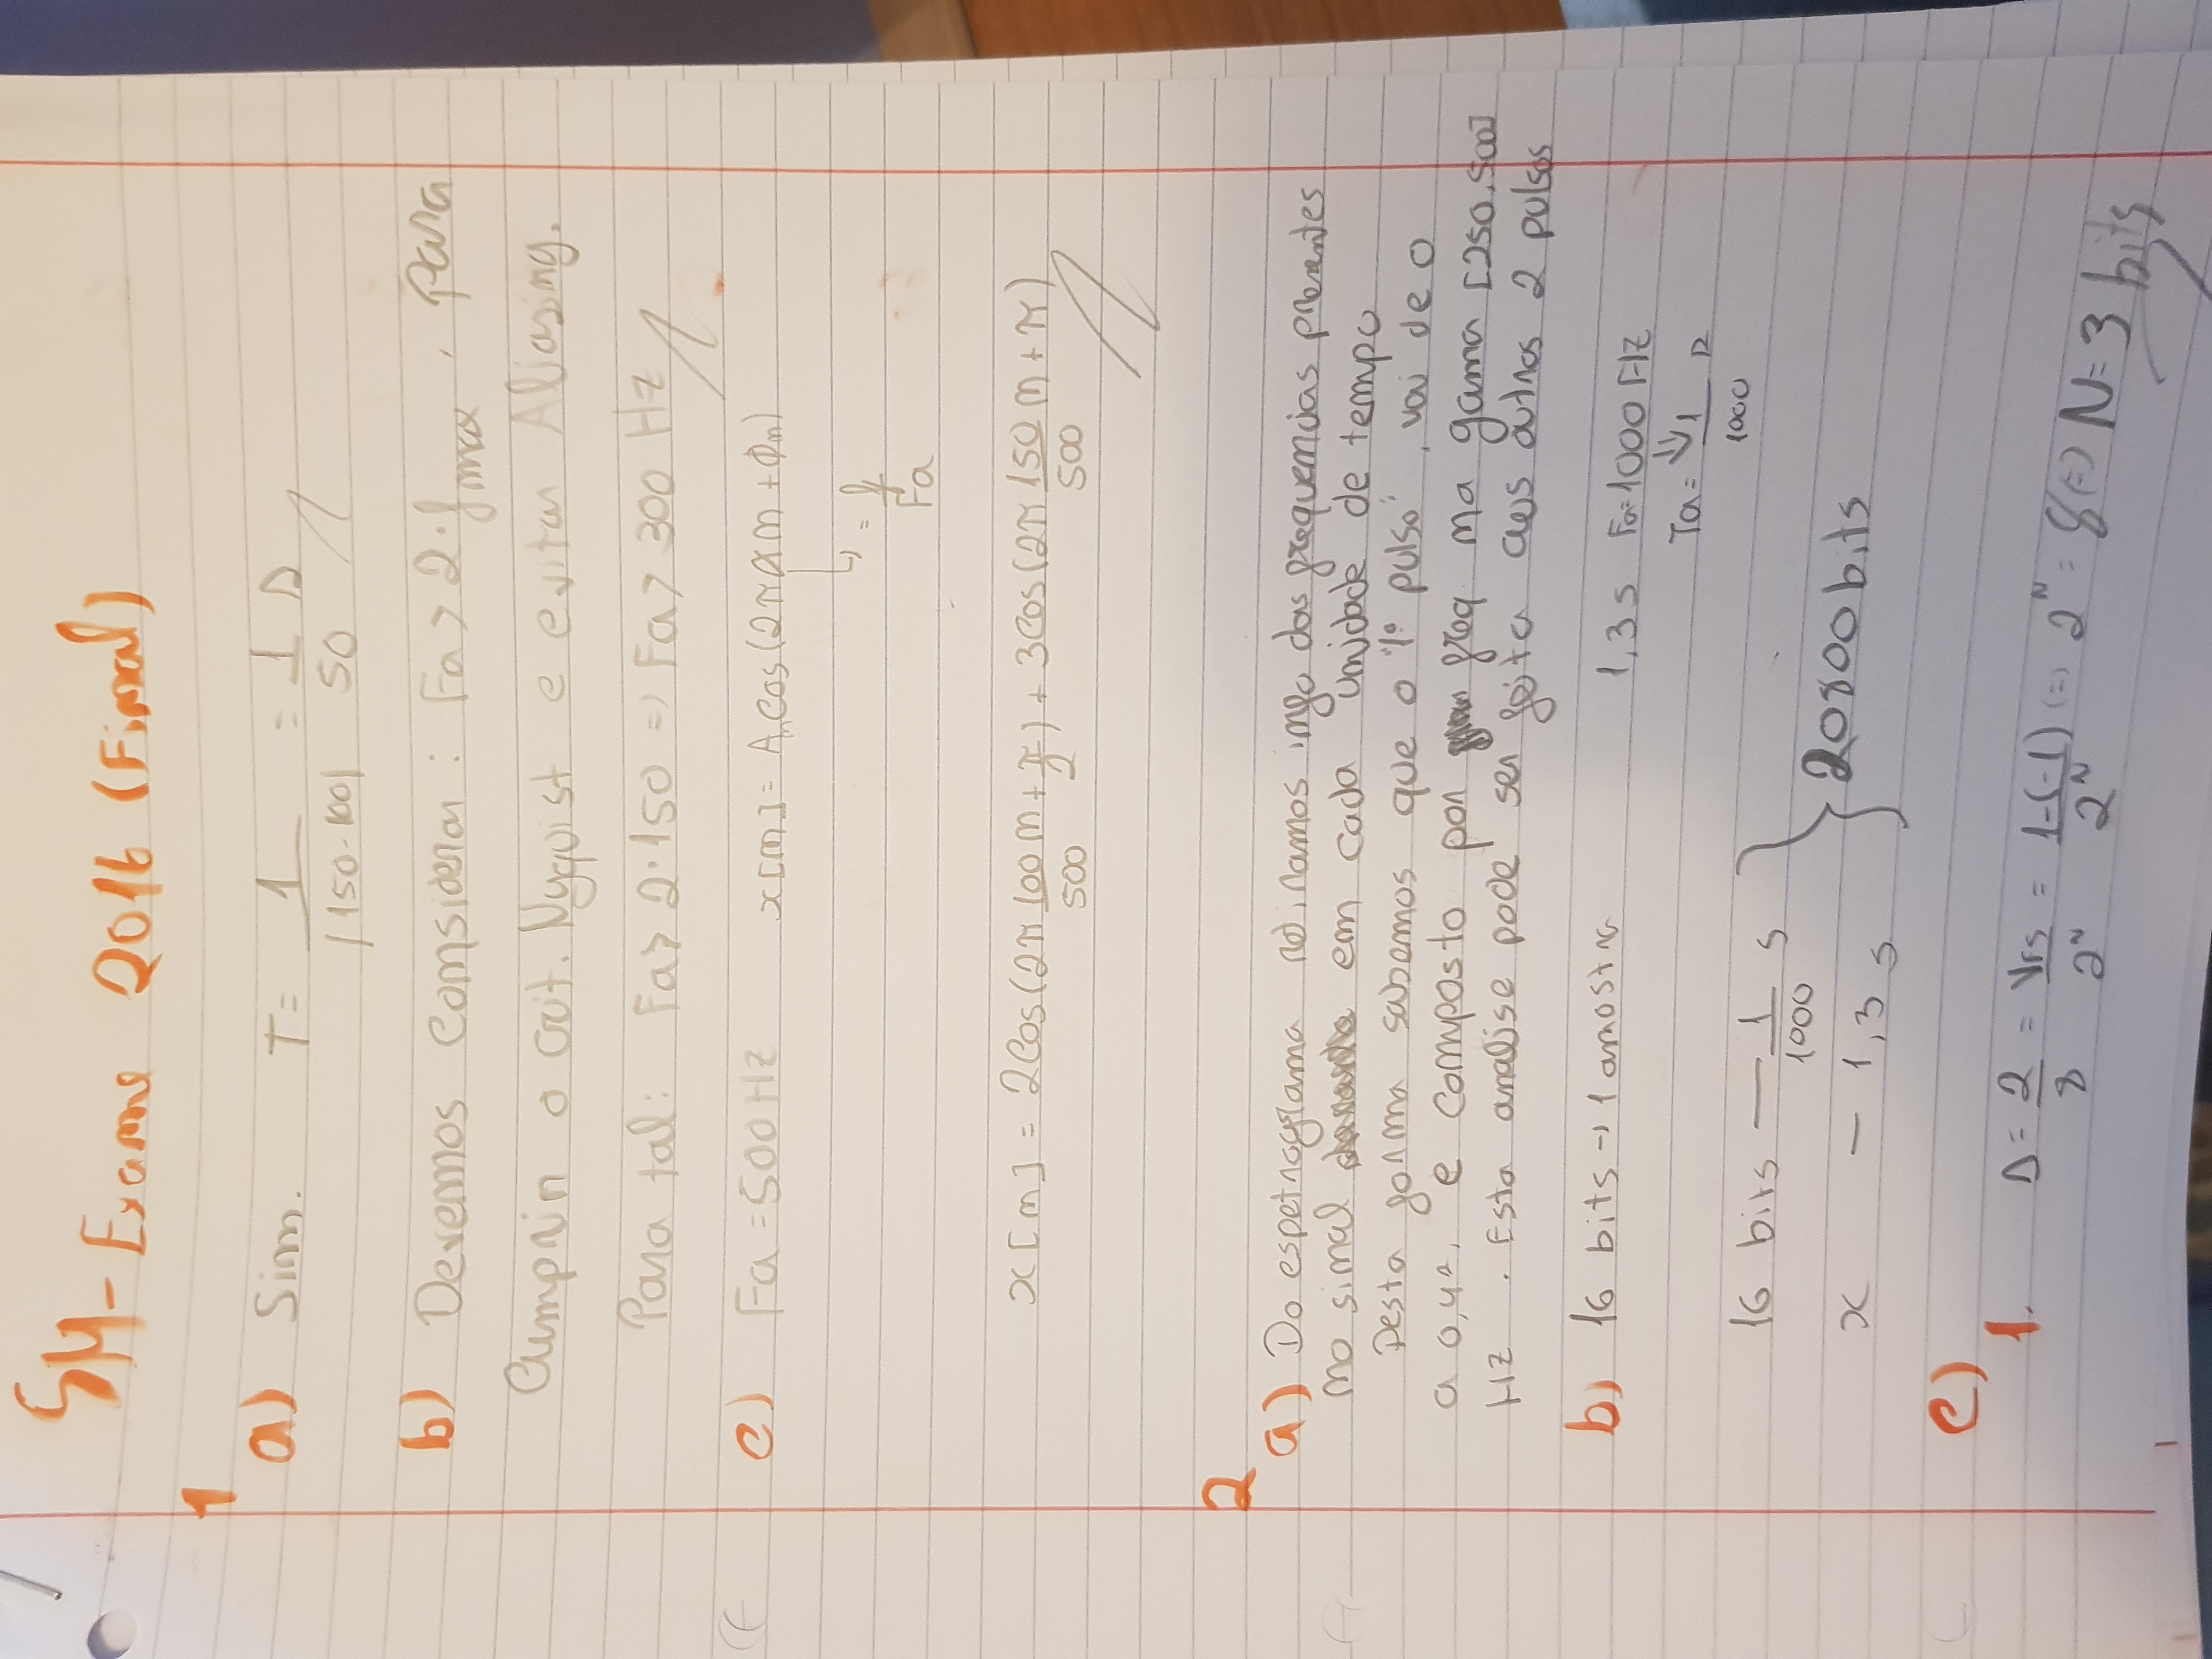 SM - Exame 2016 (Final)
1
a) Sim. T = 1/|150-100| = 1/50 s
b) Devemos considerar : Fa > 2·fmax , para
Cumprir o Crit. Nyquist e evitar Aliasing.
Para tal: Fa > 2·150 => Fa > 300 Hz
c) Fa = 500 Hz x[n] = An cos(2π α n + Φn)
↳ = f/Fa
x[n] = 2cos(2π 100/500 n + π/2) + 3cos(2π 150/500 n + π)
2
a) Do espetrograma info das frequencias presentes
no sinal em cada unidade de tempo
Desta forma sabemos que o "1º pulso", vai de 0
a 0,4s, e composto por freq na gama [250,500]
Hz . Esta analise pode ser feita aos outros 2 pulsos
b) 16 bits → 1 amostra 1,3 s Fa=1000 Hz
Ta = 1/1000 s
16 bits — 1/1000 s
x — 1,3 s } 20800 bits
c)
1. Δ = 2/8 = VFS/2^N = 1-(-1)/2^N (=) 2^N = 8 (=) N = 3 bits